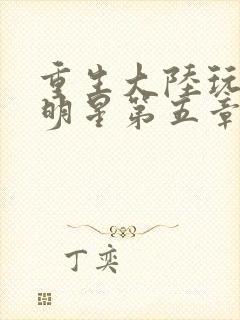 重生大陸玩
明星第五章
丁奕